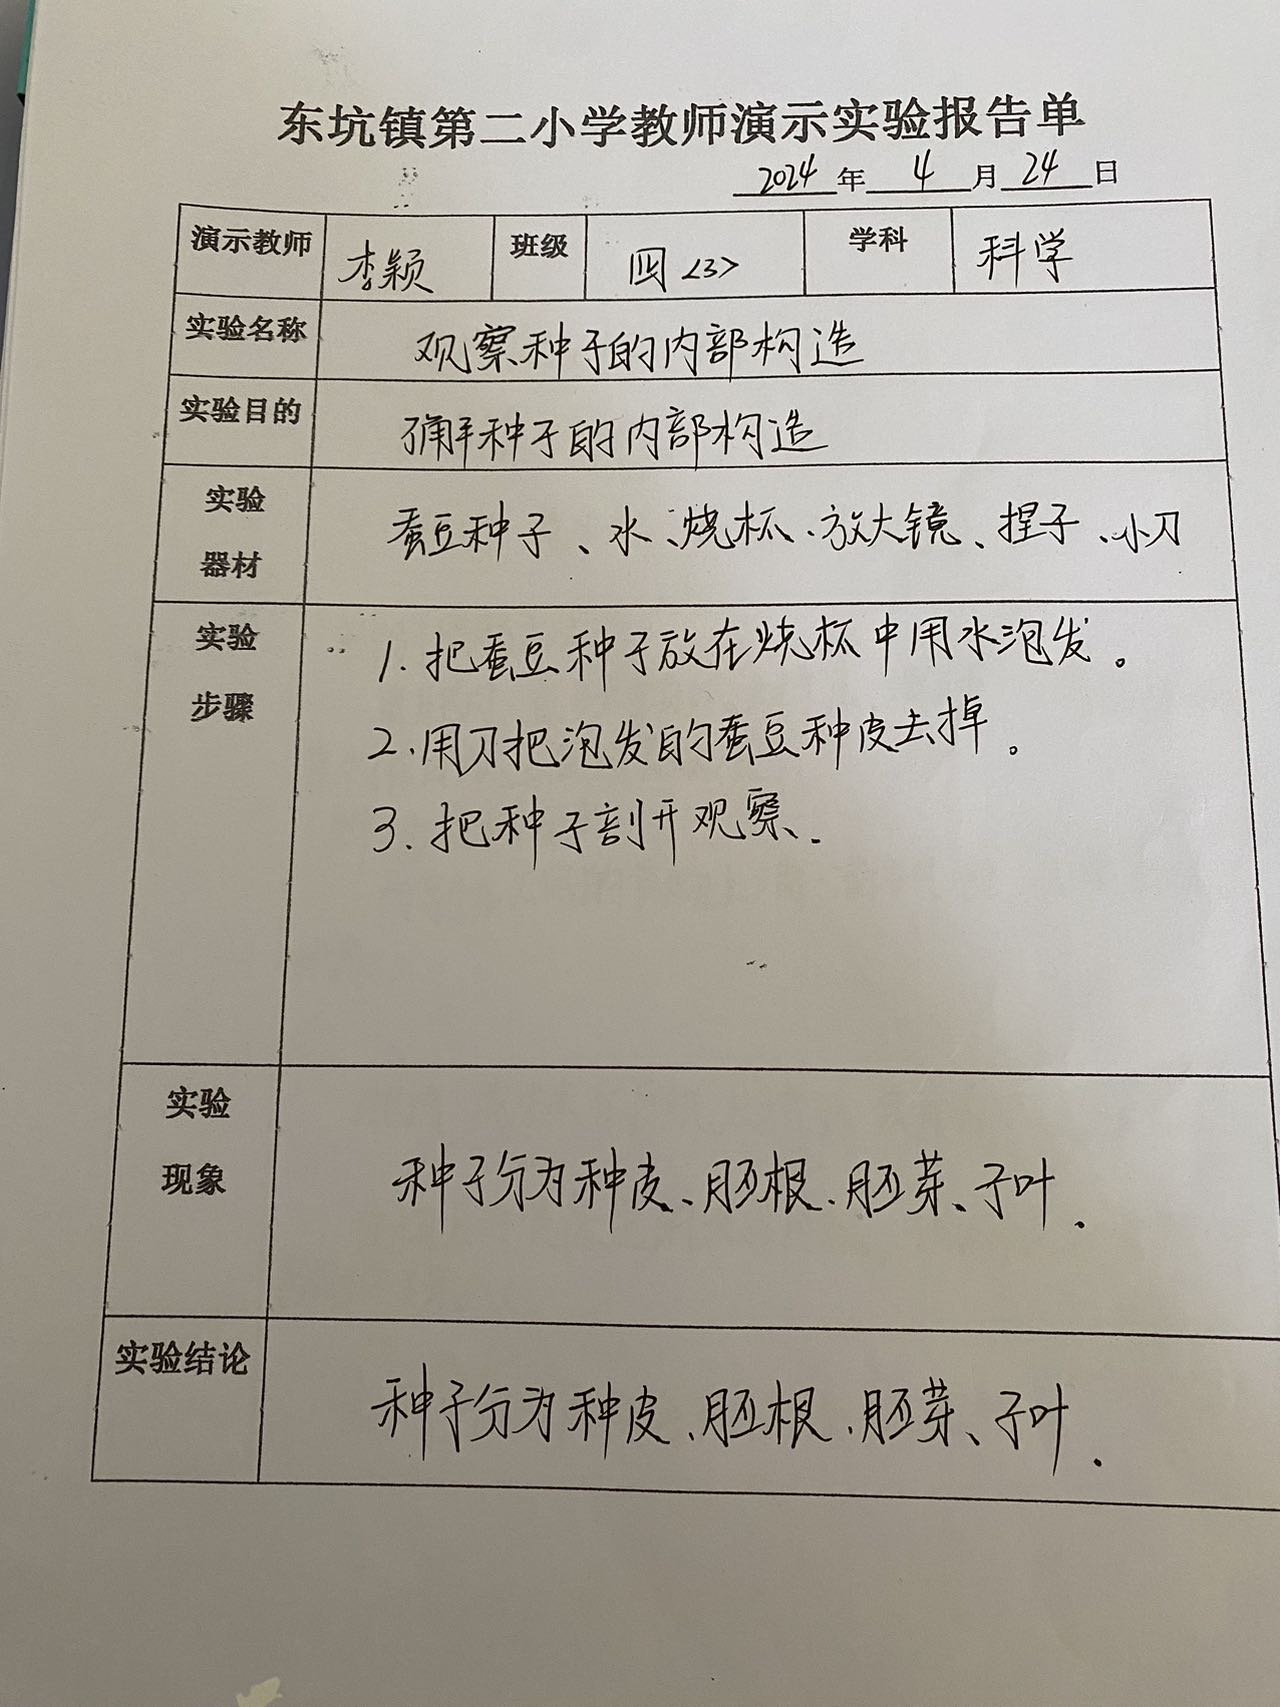 东坑镇第二小学教师演示实验报告单
2024年4月24日
演示教师 李颖 班级 四<3> 学科 科学
实验名称 观察种子的内部构造
实验目的 了解种子的内部构造
实验器材 蚕豆种子、水、烧杯、放大镜、捏子、小刀
实验步骤
1.把蚕豆种子放在烧杯中用水泡发。
2.用刀把泡发的蚕豆种皮去掉。
3.把种子剖开观察.
实验现象 种子分为种皮、胚根、胚芽、子叶.
实验结论 种子分为种皮、胚根、胚芽、子叶.